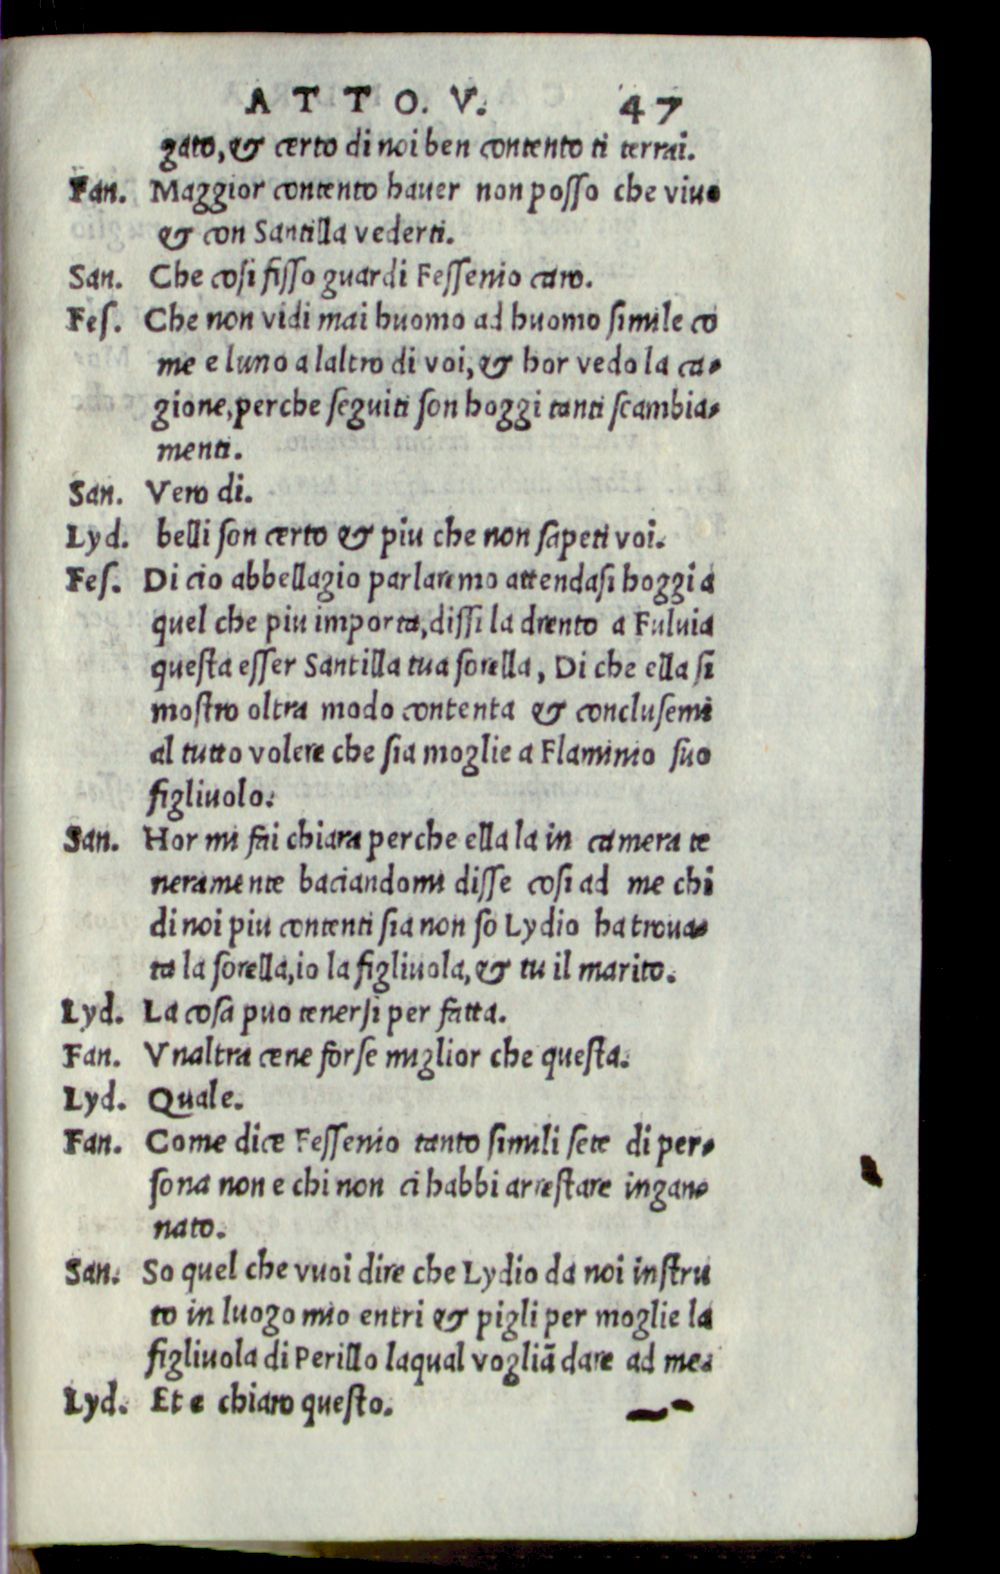 ATTO. V. 47
gato, & certo di noi ben contento ti terrai.
Fan. Maggior contento hauer non posso che viuo
& con Santilla vederti.
San. Che cosi fisso guardi Fessenio caro.
Fes. Che non vidi mai huomo ad huomo simile co
me e luno a laltro di voi, & hor vedo la ca-
gione, perche seguiti son hoggi tanti scambia-
menti.
San. Vero di.
Lyd. belli son certo & piu che non sapeti voi.
Fes. Di cio abbellagio parlaremo attendasi hoggi a
quel che piu importa, dissi la drento a Fuluia
questa esser Santilla tua sorella, Di che ella si
mostro oltra modo contenta & conclusemi
al tutto volere che sia moglie a Flaminio suo
figliuolo.
San. Hor mi fai chiara perche ella la in camera te
neramente baciandomi disse cosi ad me chi
di noi piu contenti sia non so Lydio ha troua-
ta la sorella, io la figliuola, & tu il marito.
Lyd. La cosa puo tenersi per fatta.
Fan. Vnaltra cene forse miglior che questa.
Lyd. Quale.
Fan. Come dice Fessenio tanto simili sete di per-
sona non e chi non ci habbi arrestare ingan-
nato.
San. So quel che vuoi dire che Lydio da noi instru
to in luogo mio entri & pigli per moglie la
figliuola di Perillo laqual vogliã dare ad me.
Lyd. Et e chiaro questo.